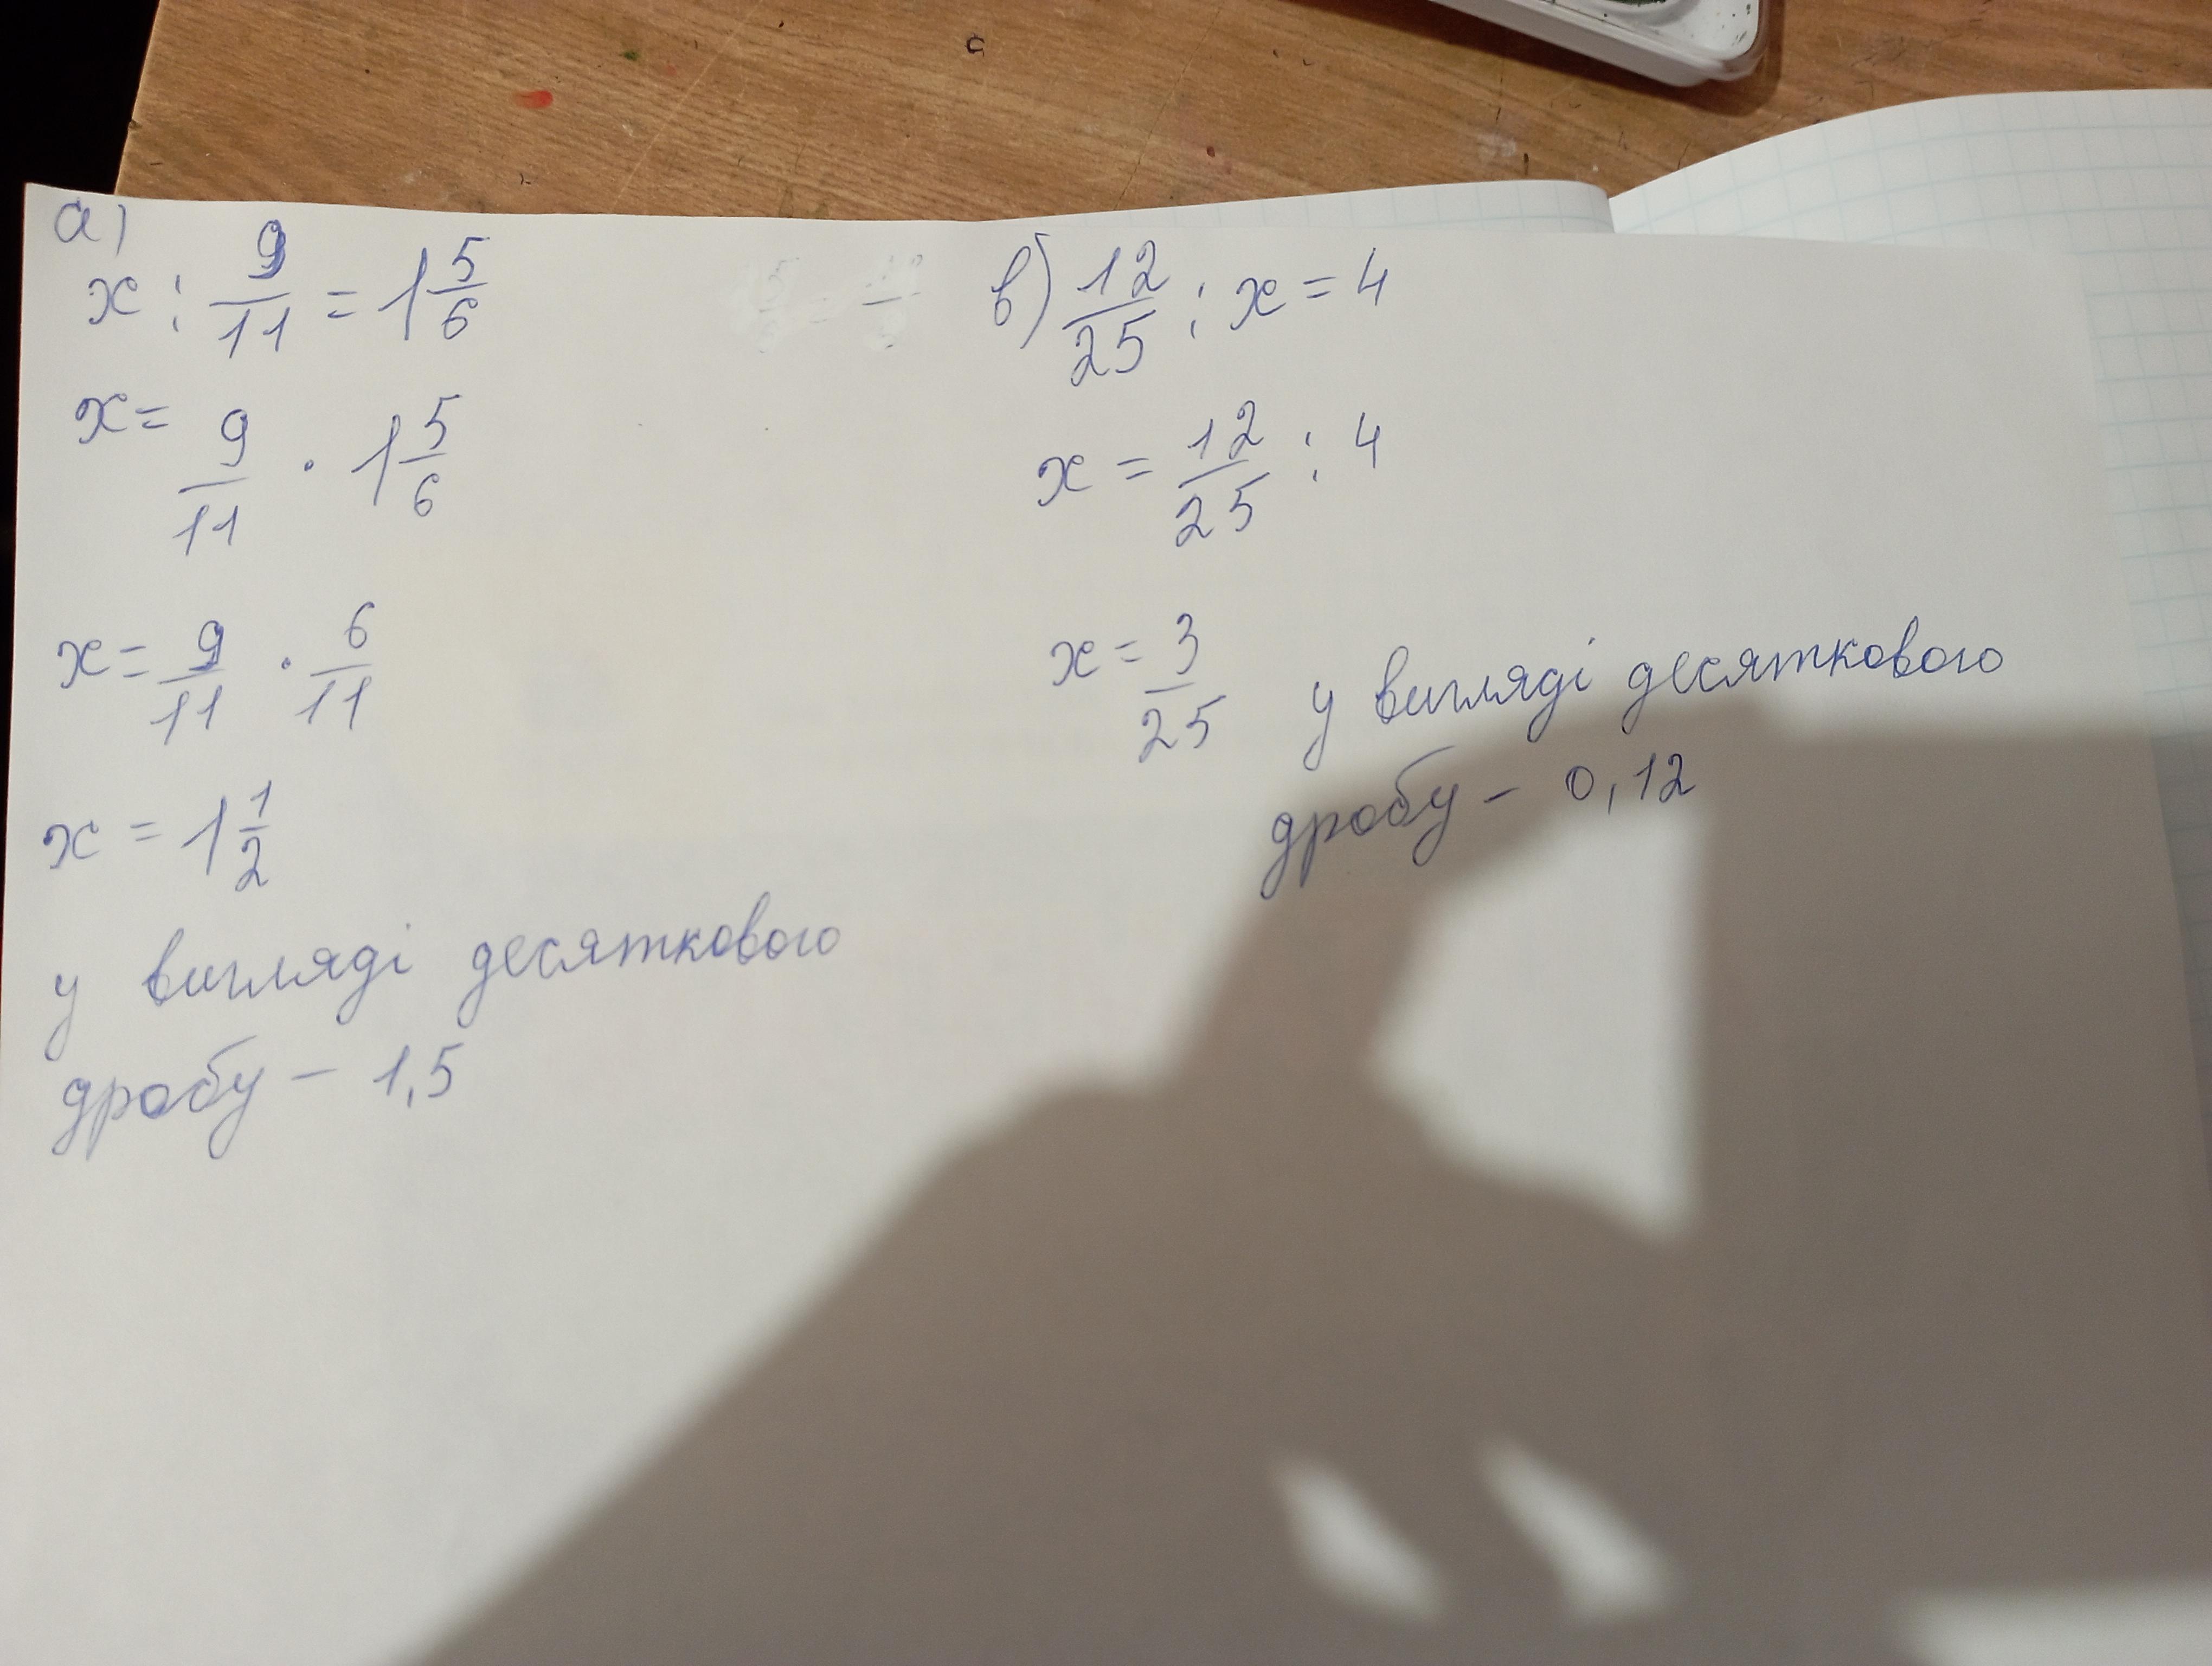 а)
x : 9/11 = 1 5/6
x = 9/11 · 1 5/6
x = 9/11 · 6/11
x = 1 1/2
у вигляді десяткового
дробу – 1,5
в) 12/25 : x = 4
x = 12/25 : 4
x = 3/25 у вигляді десяткового
дробу – 0,12